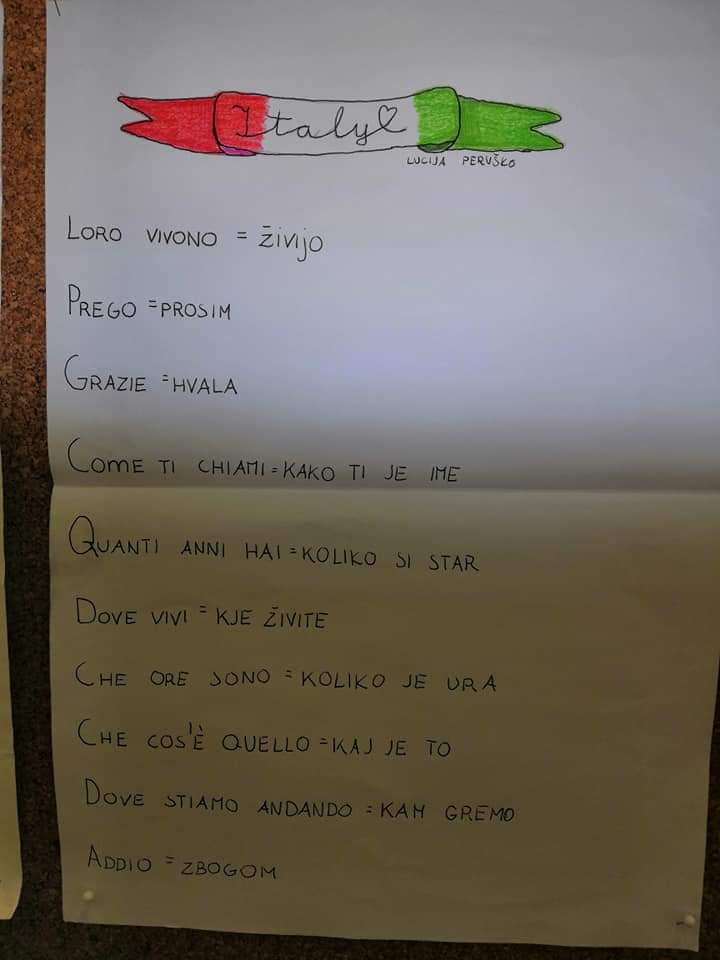 Italy
LUCIJA PERUŠKO
LORO VIVONO = ŽIVIJO
PREGO = PROSIM
GRAZIE = HVALA
COME TI CHIAMI = KAKO TI JE IME
QUANTI ANNI HAI = KOLIKO SI STAR
DOVE VIVI = KJE ŽIVITE
CHE ORE SONO = KOLIKO JE URA
CHE COS'È QUELLO = KAJ JE TO
DOVE STIAMO ANDANDO = KAM GREMO
ADDIO = ZBOGOM